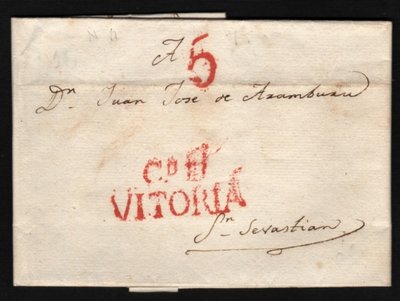 A
5
Dn. Juan José de Aramburu
CD
VITORIA
Sn. Sevastian